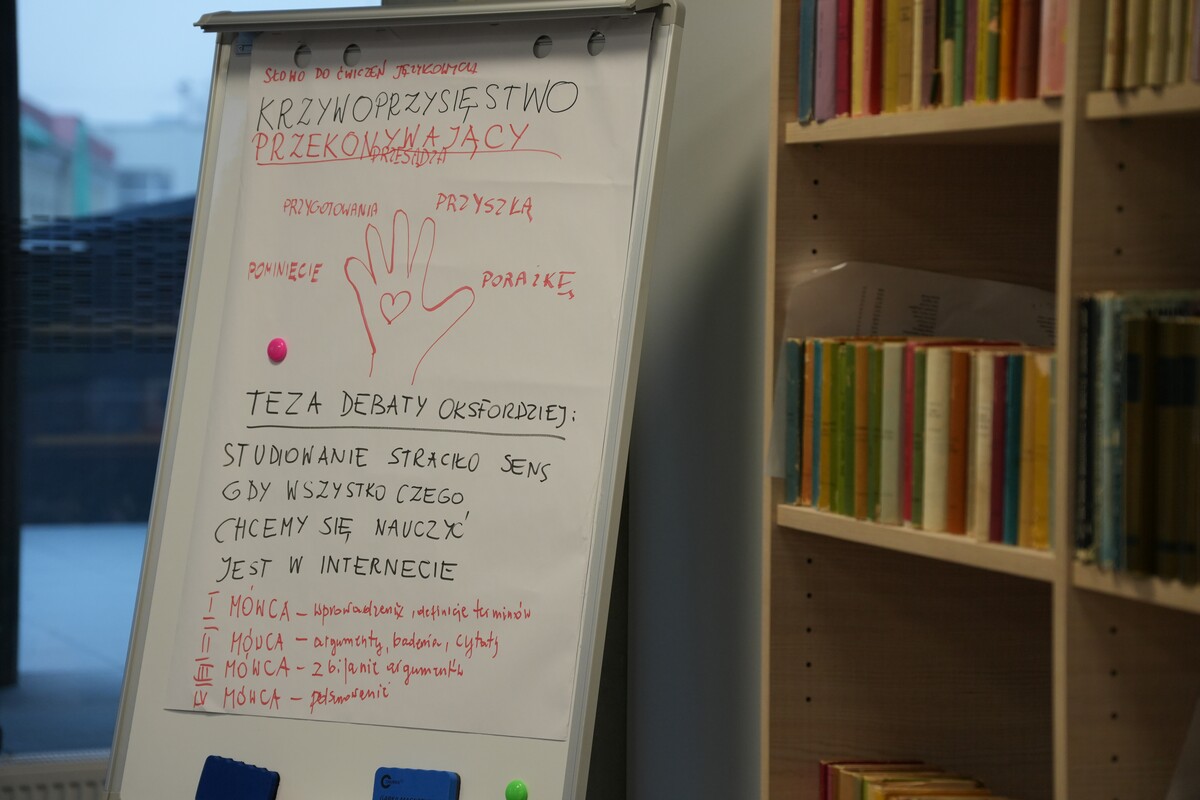 SŁOWO DO ĆWICZEŃ JĘZYKOWYCH
KRZYWOPRZYSIĘSTWO
PRZEKONYWAJĄCY
PRZESĄDZA
PRZYGOTOWANIA
PRZYSZŁĄ
POMINIĘCIE
PORAŻKĘ
TEZA DEBATY OKSFORDZIEJ:
STUDIOWANIE STRACIŁO SENS
GDY WSZYSTKO CZEGO
CHCEMY SIĘ NAUCZYĆ
JEST W INTERNECIE
I MÓWCA – wprowadzenie, definicje terminów
II MÓWCA – argumenty, badania, cytaty
III MÓWCA – zbijanie argumentów
IV MÓWCA – podsumowanie